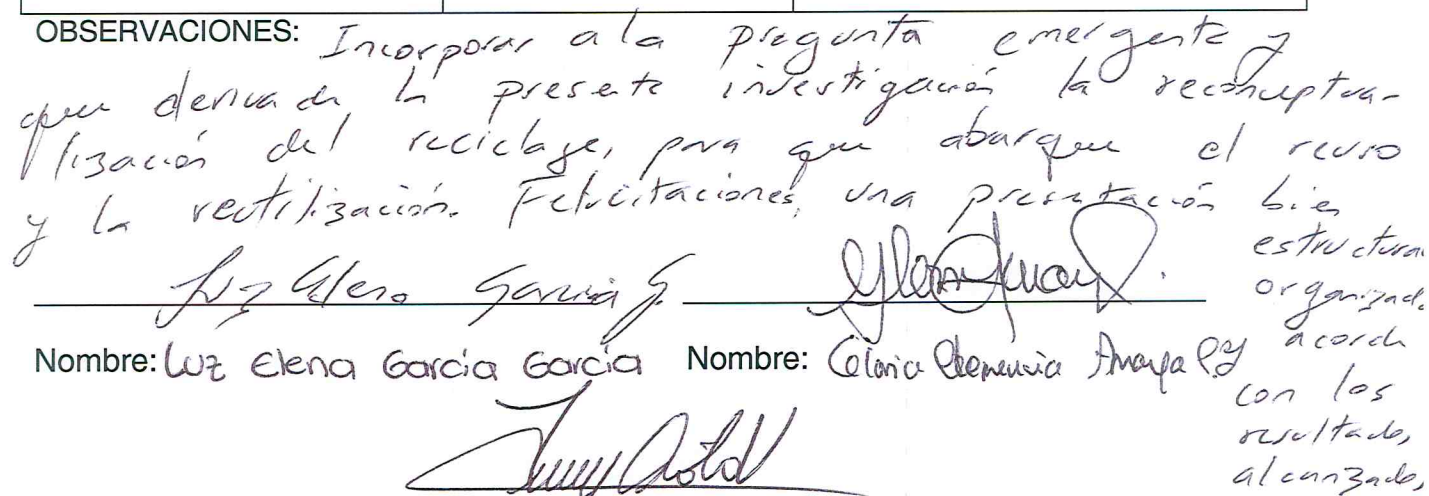 OBSERVACIONES: Incorporar a la pregunta emergente y
que deriva de la presente investigación la reconceptua-
lización del reciclaje, para que abarque el reuso
y la reutilización. Felicitaciones, una presentación bien
estructura
organizad.
y acorde
con los
resultado,
alcanzado,
Luz Elena García G.
Nombre: Luz Elena García García Nombre: Gloria Clemencia Amaya